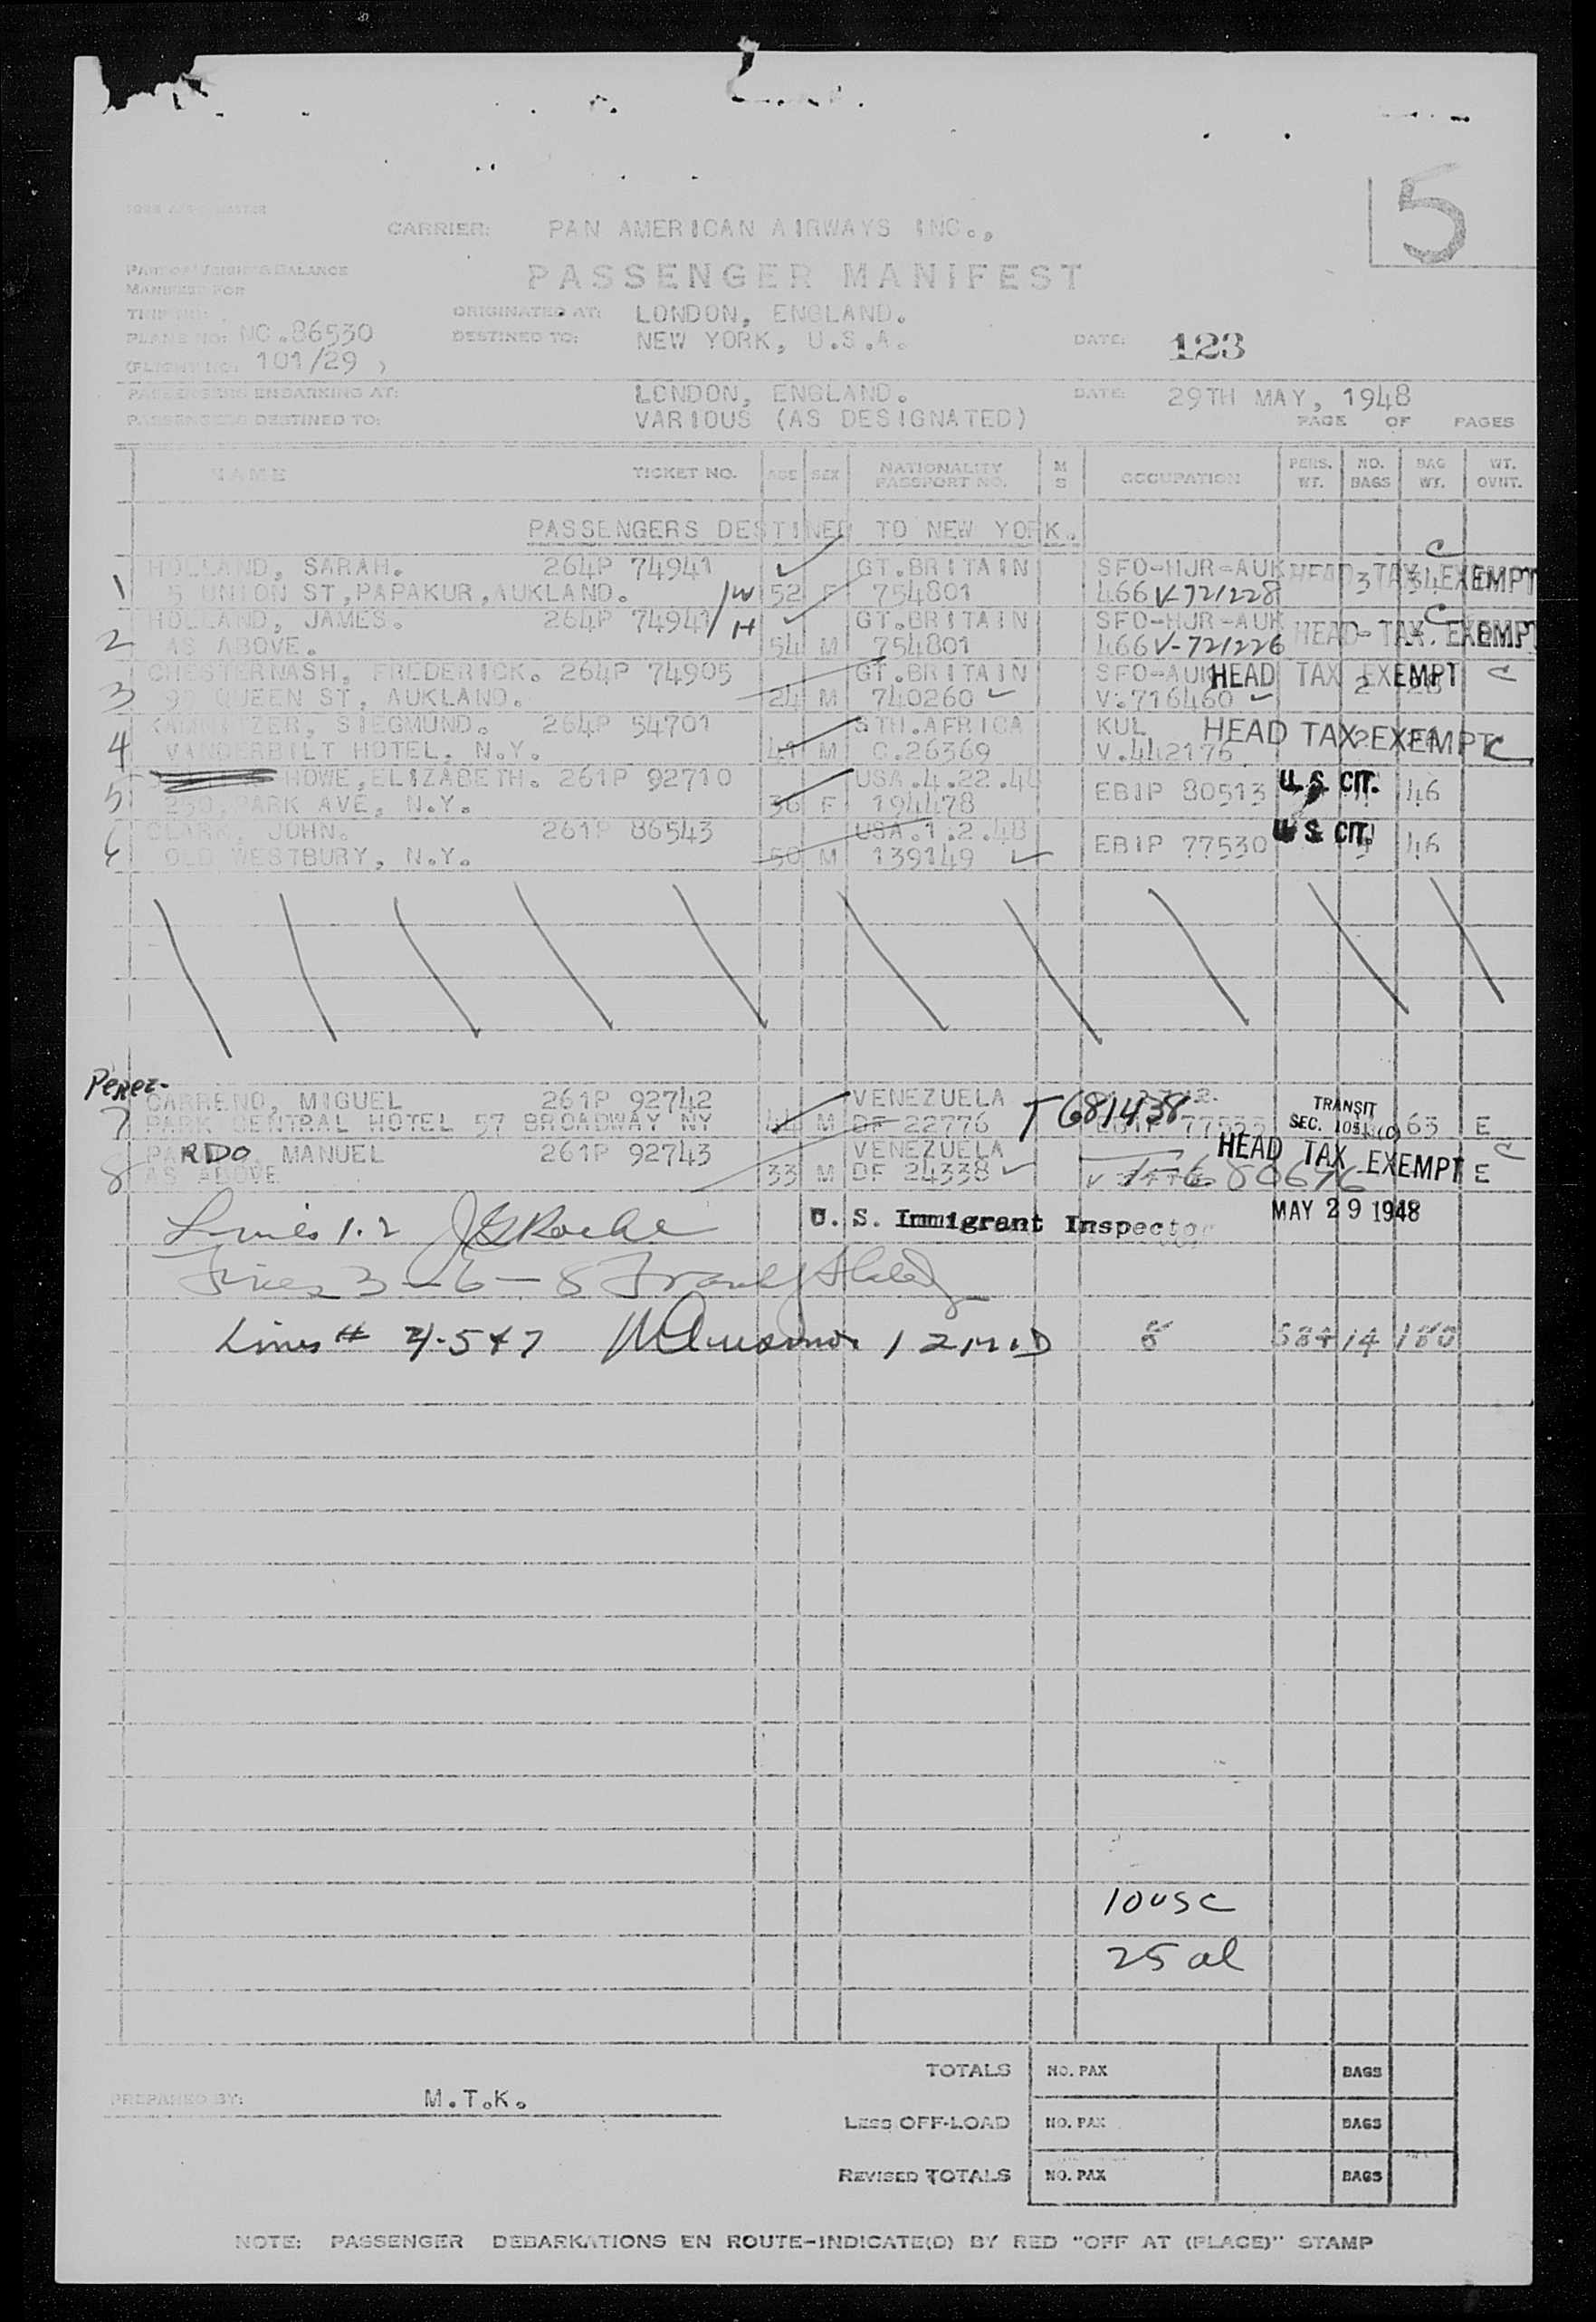 5
CARRIER: PAN AMERICAN AIRWAYS INC.,
PART OF WEIGHT & BALANCE
MANIFEST FOR
PASSENGER MANIFEST
TRIP NO:
ORIGINATED AT: LONDON, ENGLAND.
PLANE NO: NC.86530 DESTINED TO: NEW YORK, U.S.A. DATE: 123
(FLIGHT NO: 101/29 )
PASSENGERS EMBARKING AT: LONDON, ENGLAND. DATE: 29TH MAY, 1948
PASSENGERS DESTINED TO: VARIOUS (AS DESIGNATED) PAGE OF PAGES
NAME TICKET NO. AGE SEX NATIONALITY PASSPORT NO. M S OCCUPATION PERS. WT. NO. BAGS BAG WT. WT. OVNT.
PASSENGERS DESTINED TO NEW YORK.
HOLLAND, SARAH. 264P 74941 GT.BRITAIN SFO-HJR-AUK HEAD TAX EXEMPT C
1 5 UNION ST,PAPAKUR,AUKLAND. /W 52 F 754801 466 V-721228 3 34
HOLLAND, JAMES. 264P 74941/H GT.BRITAIN SFO-HJR-AUK HEAD TAX EXEMPT C
2 AS ABOVE. 54 M 754801 466 V-721226
CHESTERNASH, FREDERICK. 264P 74905 GT.BRITAIN SFO-AUK HEAD TAX EXEMPT C
3 QUEEN ST, AUKLAND. 24 M 740260 V.716460 2
SIEGMUND. 264P 54701 STH.AFRICA KUL HEAD TAX EXEMPT C
4 VANDERBILT HOTEL. N.Y. 41 M C.26369 V.442176
HOWE,ELIZABETH. 261P 92710 USA.4.22.48 U.S. CIT.
5 250, PARK AVE, N.Y. 36 F 194478 EBIP 80513 46
CLARK, JOHN. 261P 86543 USA.1.2.48 U S CIT.
6 OLD WESTBURY, N.Y. 50 M 139149 EBIP 77530 46
Perez-
CARRENO, MIGUEL 261P 92742 VENEZUELA T 681438 TRANSIT
7 PARK CENTRAL HOTEL 57 BROADWAY NY 44 M DF 22776 SEC. 63 E
PARDO, MANUEL 261P 92743 VENEZUELA HEAD TAX EXEMPT C
8 AS ABOVE 33 M DF 24338 E
Lines 1.2 U. S. Immigrant Inspector MAY 29 1948
Lines 3-6-8
Lines # 4-5 & 7
10 USC
25 al
TOTALS NO. PAX BAGS
PREPARED BY: M.T.K.
LESS OFF-LOAD NO. PAX BAGS
REVISED TOTALS NO. PAX BAGS
NOTE: PASSENGER DEBARKATIONS EN ROUTE-INDICATE(D) BY RED "OFF AT (PLACE)" STAMP